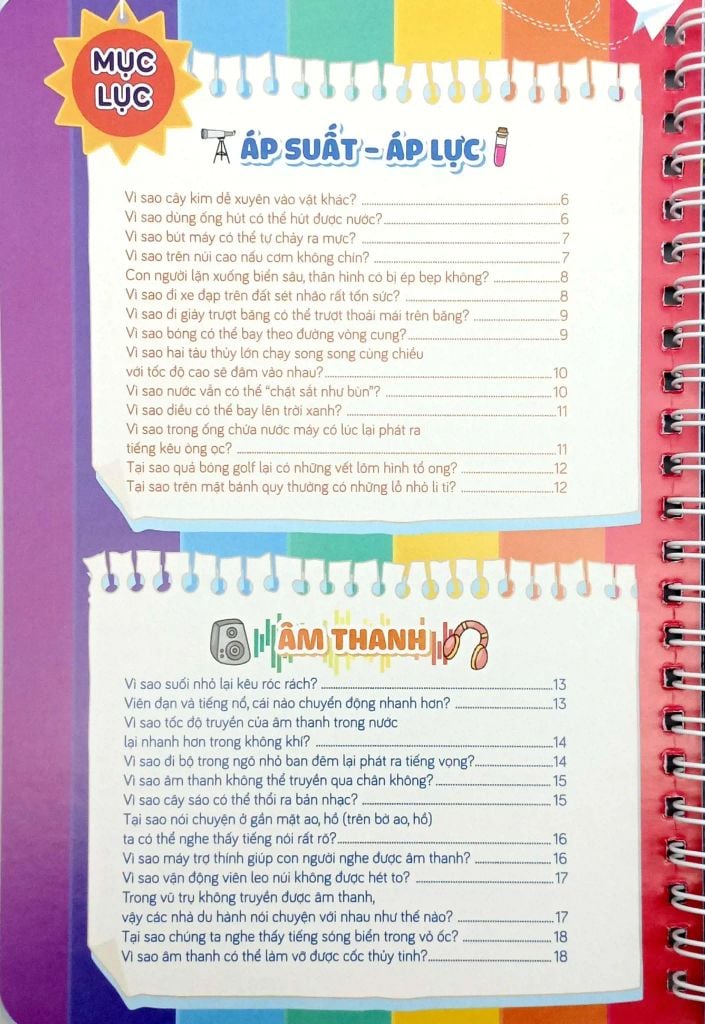 MỤC
LỤC
ÁP SUẤT – ÁP LỰC
Vì sao cây kim dễ xuyên vào vật khác? ........ 6
Vì sao dùng ống hút có thể hút được nước? ........ 6
Vì sao bút máy có thể tự chảy ra mực? ........ 7
Vì sao trên núi cao nấu cơm không chín? ........ 7
Con người lặn xuống biển sâu, thân hình có bị ép bẹp không? ........ 8
Vì sao đi xe đạp trên đất sét nhão rất tốn sức? ........ 8
Vì sao đi giày trượt băng có thể trượt thoải mái trên băng? ........ 9
Vì sao bóng có thể bay theo đường vòng cung? ........ 9
Vì sao hai tàu thủy lớn chạy song song cùng chiều
với tốc độ cao sẽ đâm vào nhau? ........ 10
Vì sao nước vẫn có thể “chặt sắt như bùn”? ........ 10
Vì sao diều có thể bay lên trời xanh? ........ 11
Vì sao trong ống chứa nước máy có lúc lại phát ra
tiếng kêu òng ọc? ........ 11
Tại sao quả bóng golf lại có những vết lõm hình tổ ong? ........ 12
Tại sao trên mặt bánh quy thường có những lỗ nhỏ li ti? ........ 12
ÂM THANH
Vì sao suối nhỏ lại kêu róc rách? ........ 13
Viên đạn và tiếng nổ, cái nào chuyển động nhanh hơn? ........ 13
Vì sao tốc độ truyền của âm thanh trong nước
lại nhanh hơn trong không khí? ........ 14
Vì sao đi bộ trong ngõ nhỏ ban đêm lại phát ra tiếng vọng? ........ 14
Vì sao âm thanh không thể truyền qua chân không? ........ 15
Vì sao cây sáo có thể thổi ra bản nhạc? ........ 15
Tại sao nói chuyện ở gần mặt ao, hồ (trên bờ ao, hồ)
ta có thể nghe thấy tiếng nói rất rõ? ........ 16
Vì sao máy trợ thính giúp con người nghe được âm thanh? ........ 16
Vì sao vận động viên leo núi không được hét to? ........ 17
Trong vũ trụ không truyền được âm thanh,
vậy các nhà du hành nói chuyện với nhau như thế nào? ........ 17
Tại sao chúng ta nghe thấy tiếng sóng biển trong vỏ ốc? ........ 18
Vì sao âm thanh có thể làm vỡ được cốc thủy tinh? ........ 18